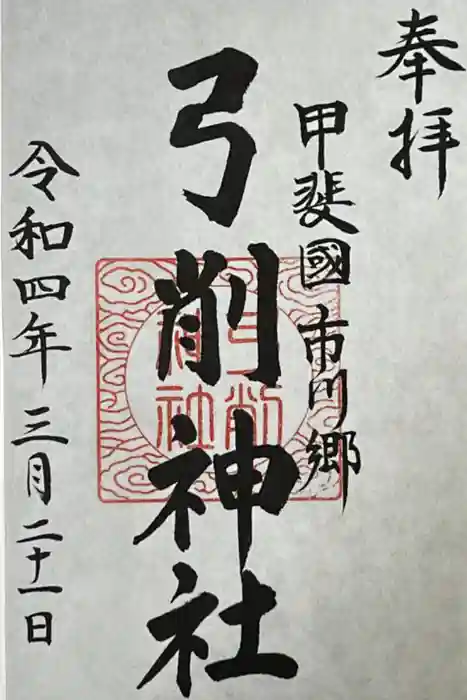 奉拝
甲斐國市川郷
弓削神社
弓削神社
令和四年三月二十一日